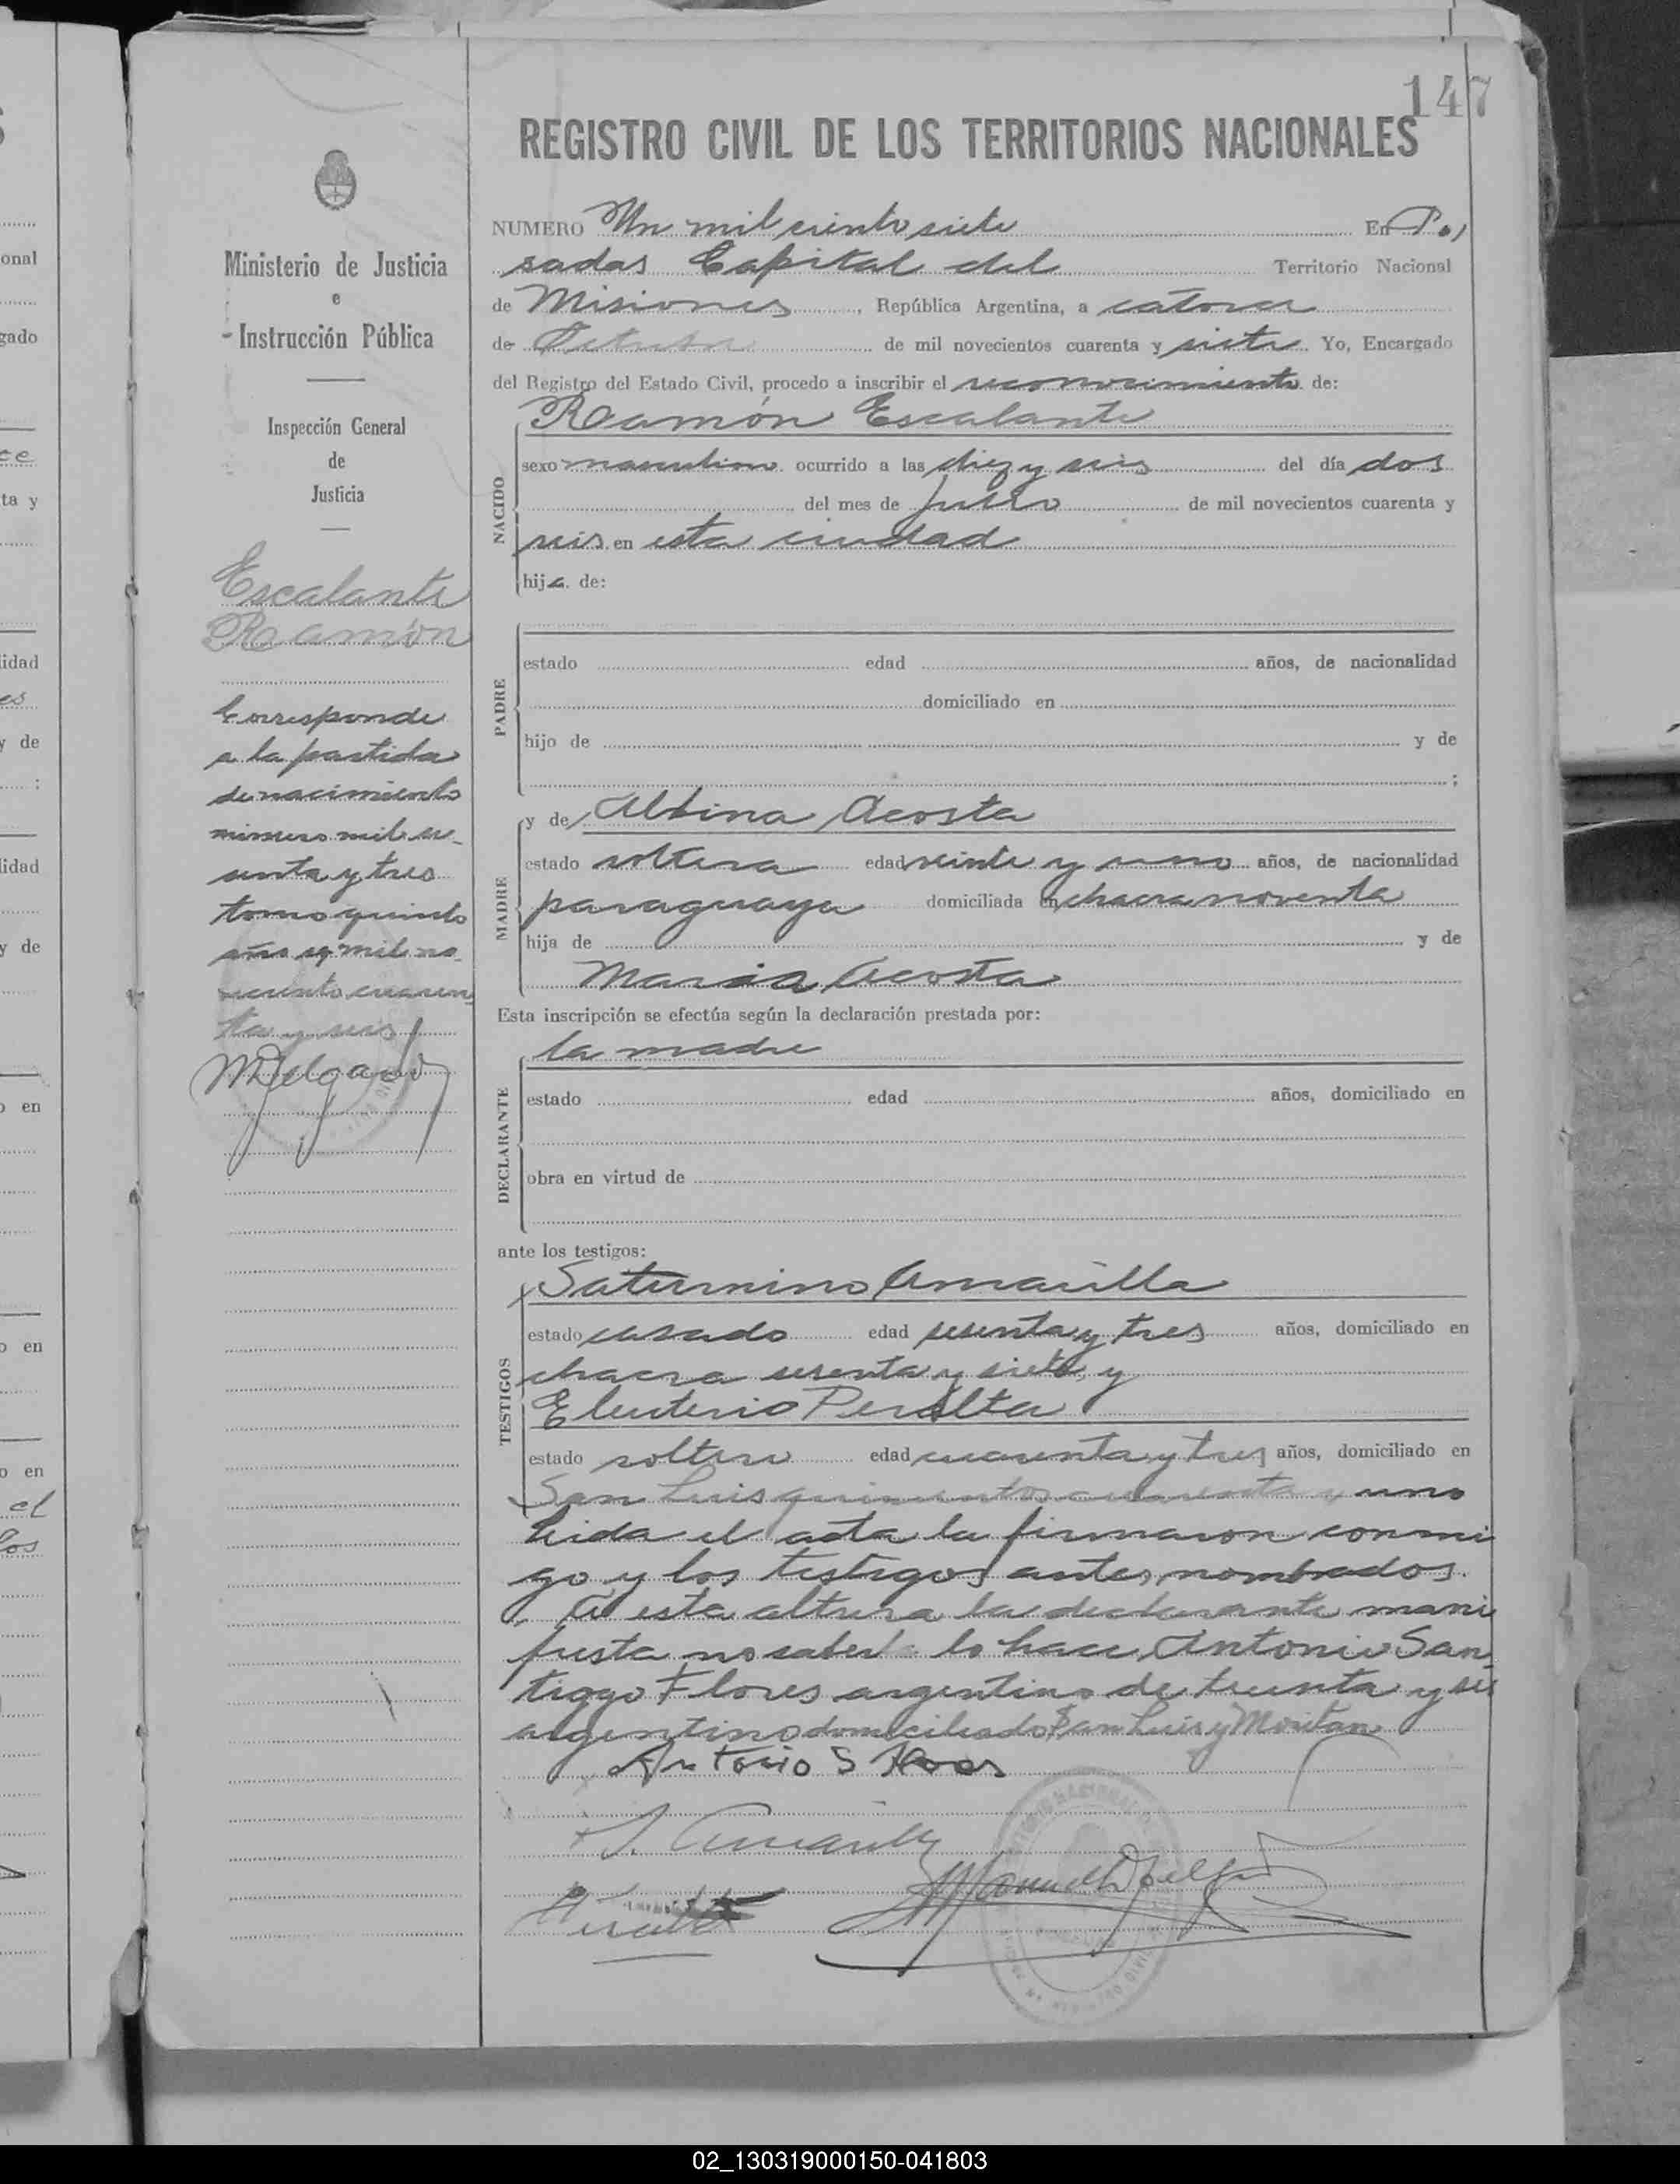 147
REGISTRO CIVIL DE LOS TERRITORIOS NACIONALES
Ministerio de Justicia
e
Instrucción Pública
Inspección General
de
Justicia
Escalante
Ramón
Corresponde
a la partida
de nacimiento
número mil se
senta y tres
tomo quinto
año mil no
veciento cuaren
ta y seis
MDelgado
NUMERO Un mil ciento siete En Po
sadas Capital del Territorio Nacional
de Misiones, República Argentina, a catorce
de Octubre de mil novecientos cuarenta y siete Yo, Encargado
del Registro del Estado Civil, procedo a inscribir el reconocimiento de:
NACIDO
Ramón Escalante
sexo masculino ocurrido a las diez y seis del día dos
del mes de Julio de mil novecientos cuarenta y
seis en esta ciudad
hijo de:
PADRE
estado edad años, de nacionalidad
domiciliado en
hijo de y de
;
MADRE
y de Albina Acosta
estado soltera edad veinte y uno años, de nacionalidad
paraguaya domiciliada en chacra noventa
hija de y de
Maria Acosta
Esta inscripción se efectúa según la declaración prestada por:
DECLARANTE
la madre
estado edad años, domiciliado en
obra en virtud de
ante los testigos:
TESTIGOS
Saturnino Amarilla
estado casado edad sesenta y tres años, domiciliado en
chacra sesenta y siete, y
Eleuterio Peralta
estado soltero edad cuarenta y tres años, domiciliado en
San Luis quinientos cuarenta y uno
Leida el acta la firmaron conmi
go y los testigos antes nombrados.
A esta altura la declarante mani
fiesta no saber lo hace Antonio San
tiago Flores argentino de treinta y seis
argentino domiciliado San Luis y Moritan
Antonio S Flores
S. Amarilla
Peralta
Manuel Delgado
onal
gado
ce
ta y
idad
es
y de
:
lidad
y de
o en
o en
o en
el
los
02_130319000150-041803